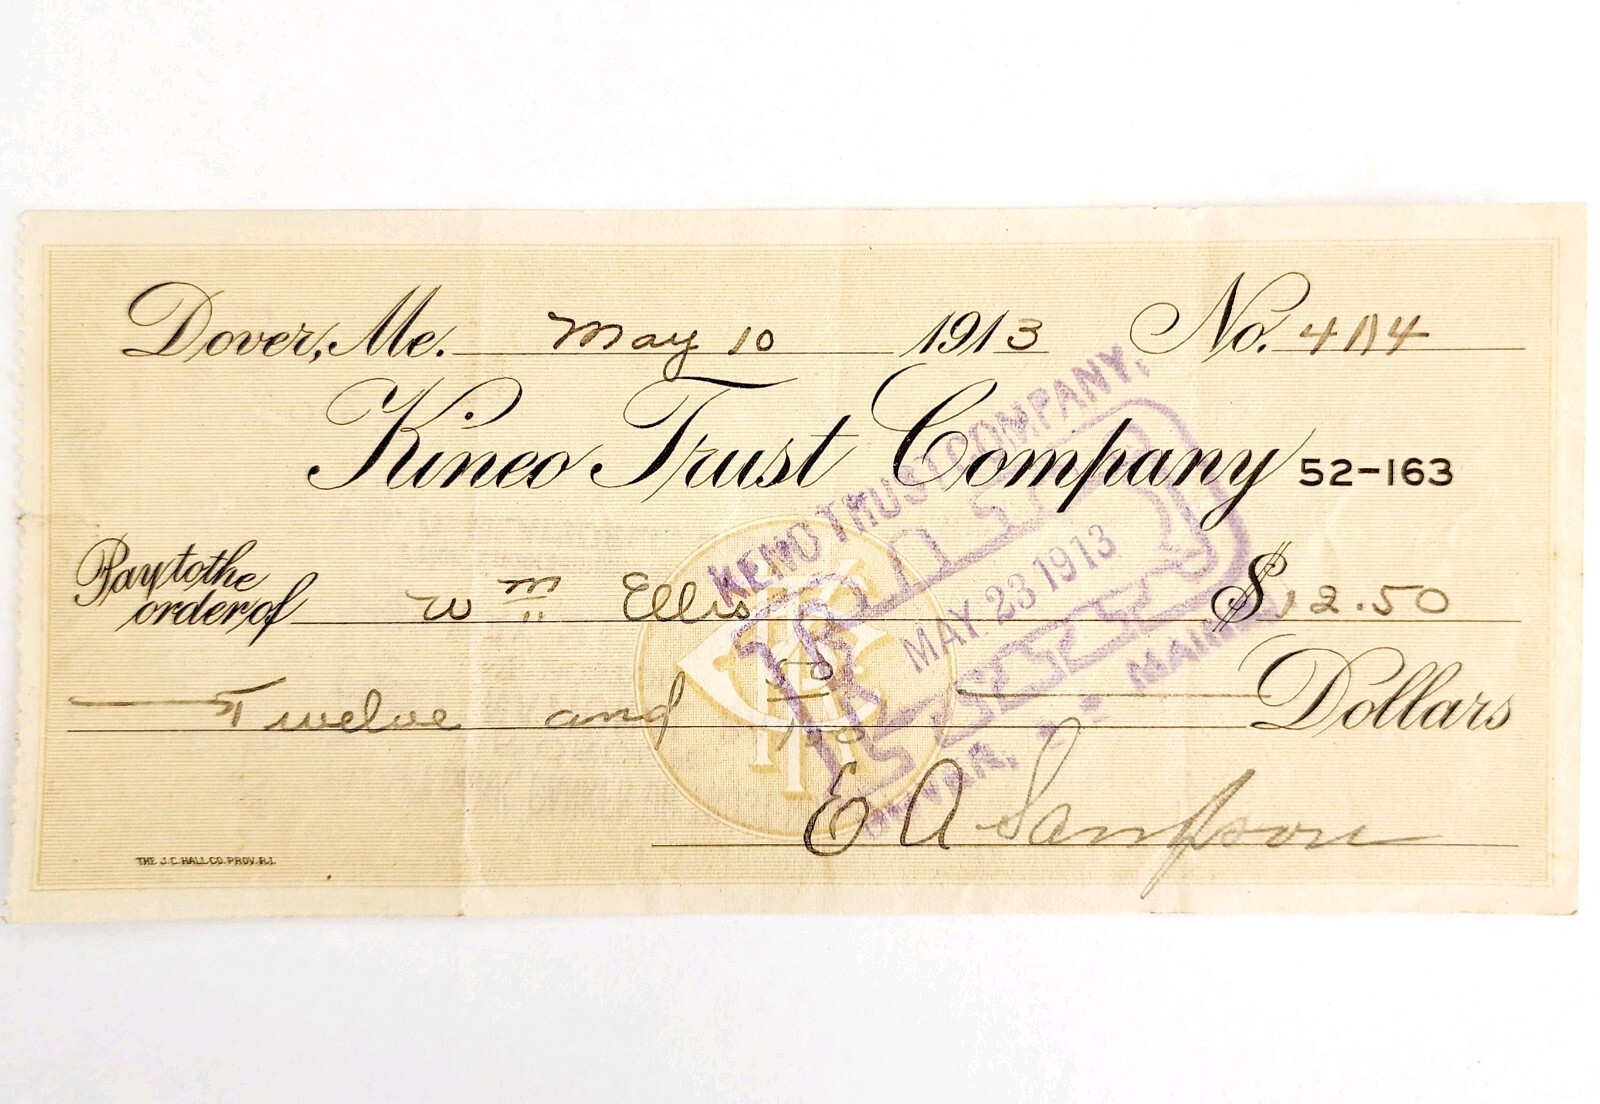 Dover, Me. May 10 1913 No. 484
Kineo Trust Company 52-163
KENO TRUST COMPANY,
PAID
MAY 23 1913
MAINE
Pay to the
order of Wm Ellis $12.50
Twelve and 50/100 Dollars
E A Sampson
THE J.C. HALL CO. PROV. R.I.